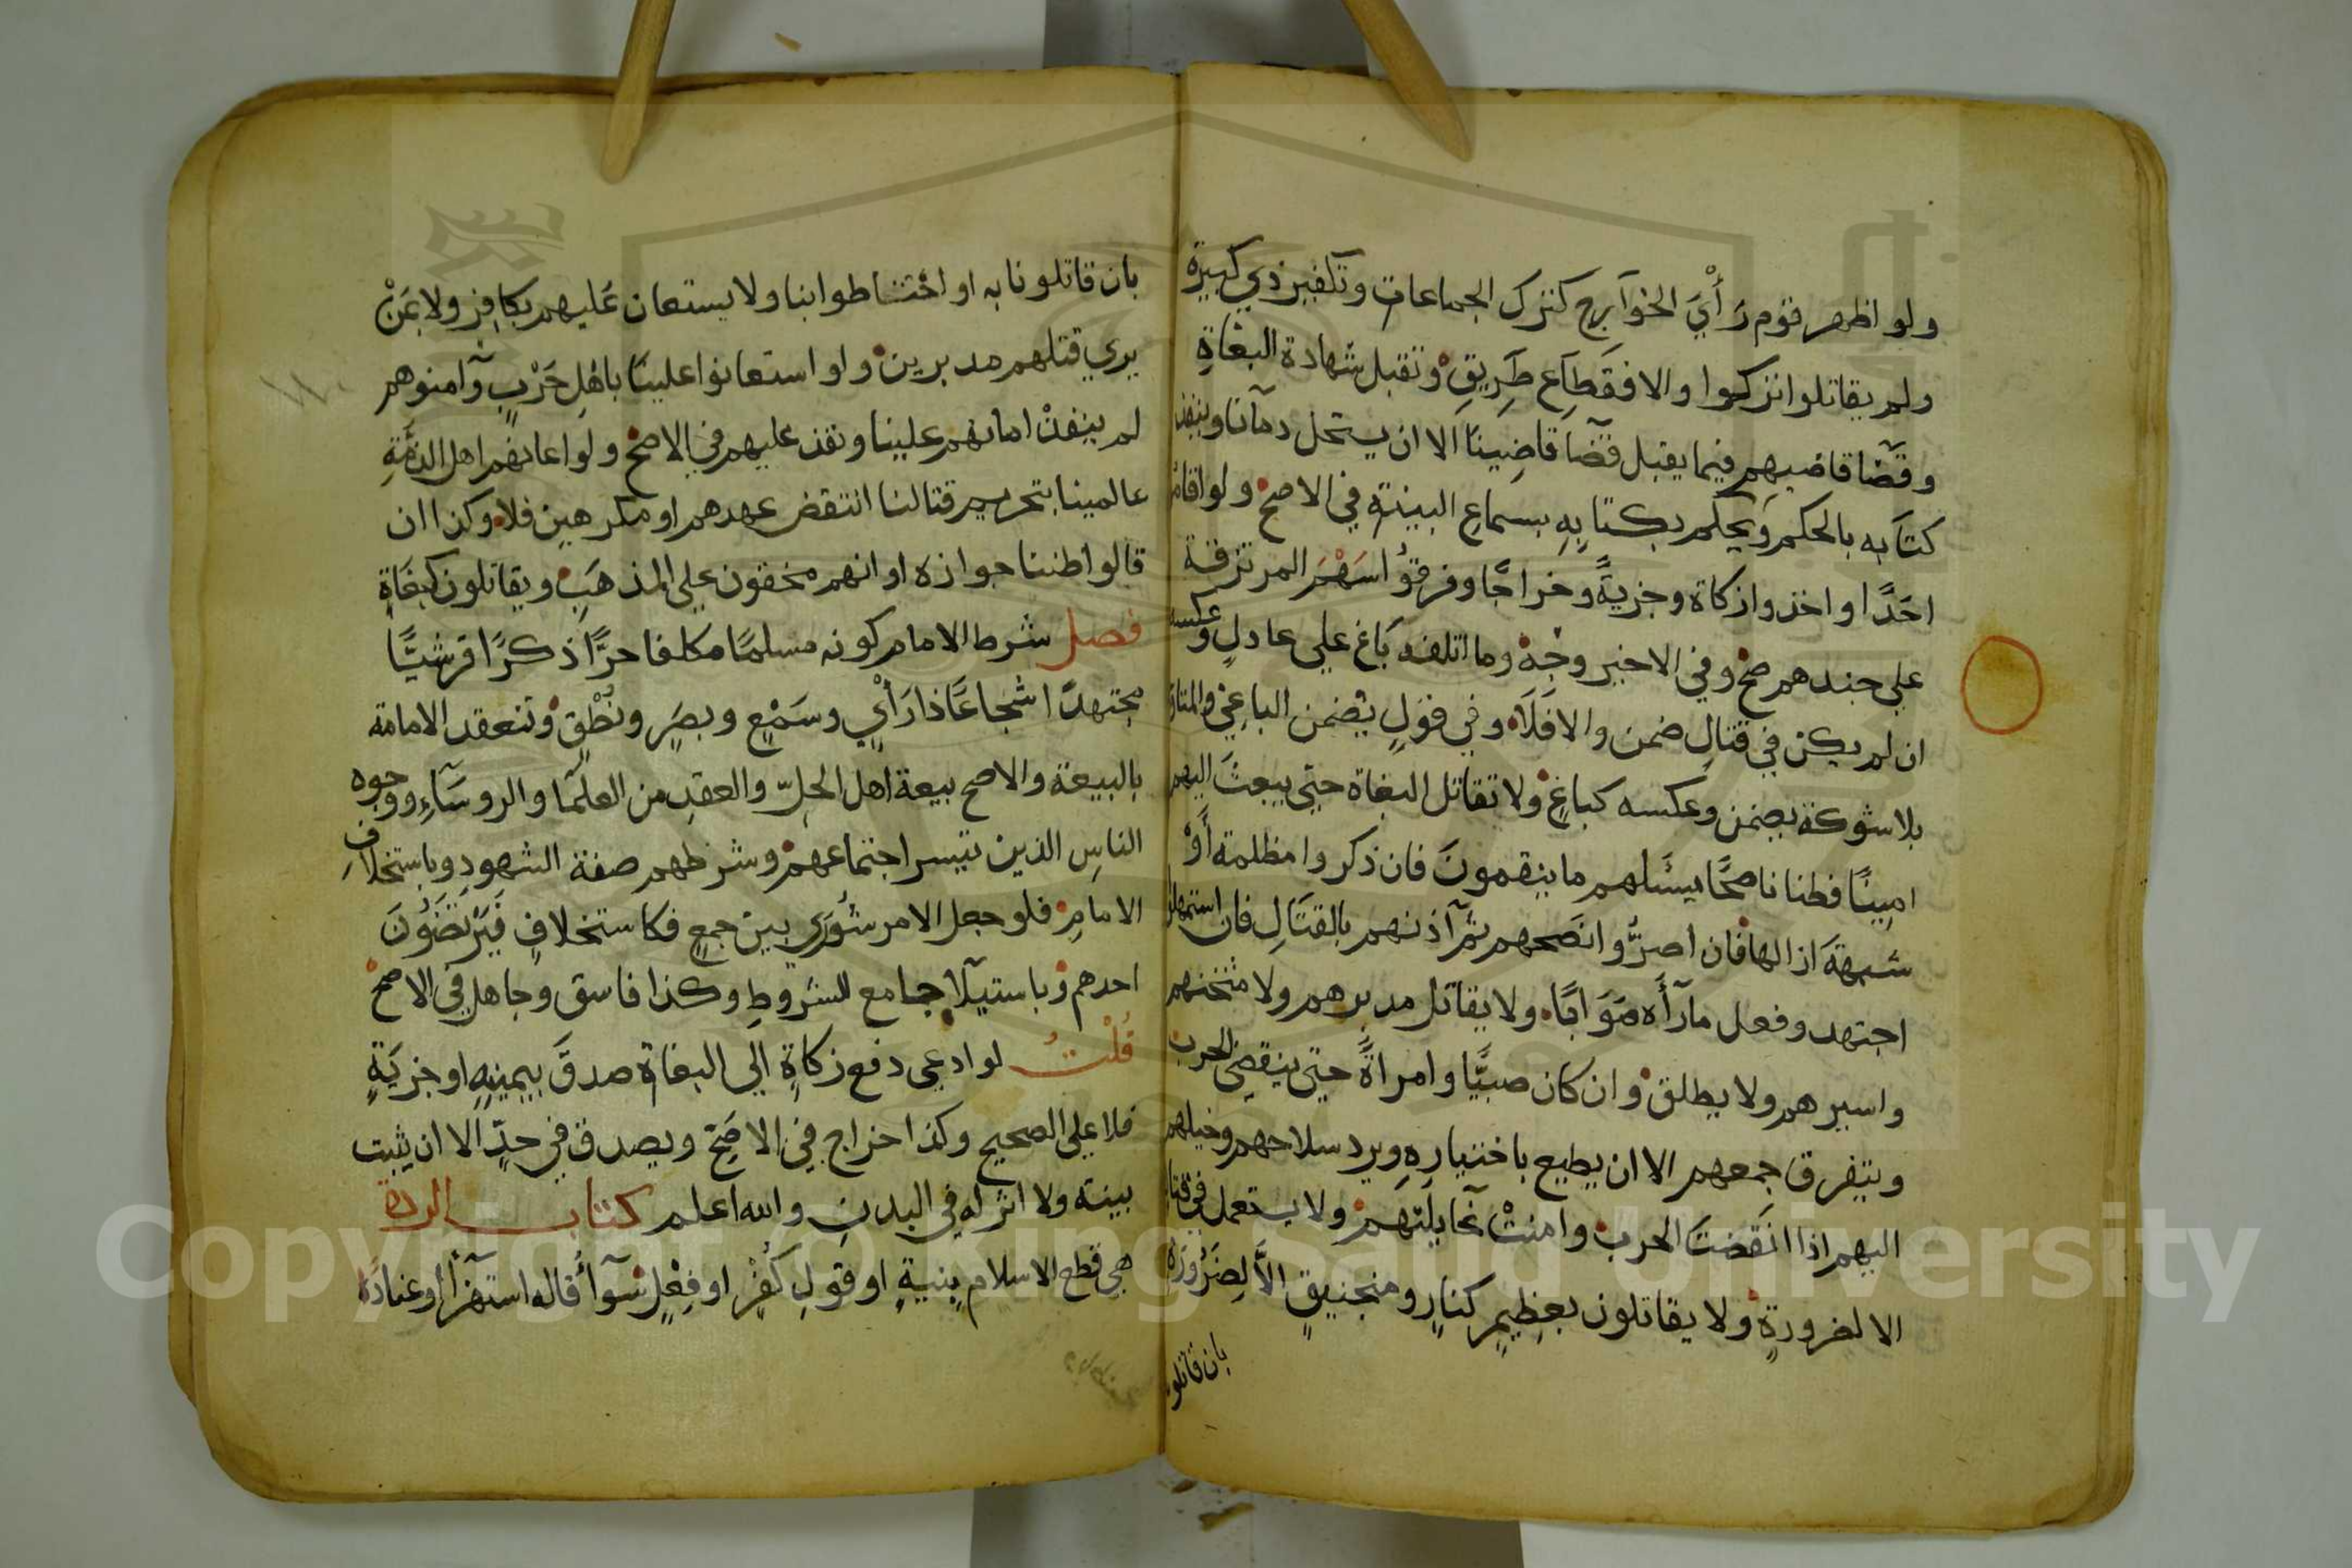 ولو اظهر قوم رَأْيَ الخوآرج كترك الجماعات وتكفير ذي كبيرة
ولم يقاتلوا تركوا والا فقطاع طَرِيقٍ وتقبل شهادة البغاةِ
وقضآ قاضيهم فيما يقبل قضآ قاضِينَا الا ان يستحل دمآنا وينفذ
كتابه بالحكم وَيحكم بكتابِهِ بسماعِ البينة في الاصح ولو اقاموا
احَدًا او اخذوا زكاة وجزيةً وخراجًا وفرقوُا سَهْمَ المرتزقة
علي جندهم صح وفي الاخير وجْهٌ وما اتلفه بَاغٍ علي عادلٍ وعكسه
ان لم يكن في قتالٍ ضمن والا فَلَا وفي قولٍ يضمن الباغي والمتاول
بلا شوكة يضمن وعكسه كباغٍ ولا تقاتل البغاة حتي يبعثَ اليهم
امينًا فطنا ناصحًا يسَلهم ما ينقمونَ فان ذكروا مظلمة أَوْ
شبهةَ ازالها فان اصرُّوا نصَحهم ثم آذنهم بالقتَالِ فان استمهلوا
اجتهد وفعل مارآَه صَوَابًا ولا يقاتل مدبرهم ولا مثخنهم
واسيرهم ولا يطلق وان كان صبيًّا وامراةً حتي ينقضي الحرب
ويتفرق جمعهم الا ان يطيع باختيارِهِ ويرد سلاحهم وخيلهم
اليهم اذا انقضتَ الحرب وامنتْ غآيلتهم ولا يستعمل في قتال
الا لضرورةٍ ولا يقاتلون بعظيمٍ كنارٍ ومنجنيقٍ الاَّ لِضَرُورَة
بان قاتلو
بان قاتلونا به او احْتاطوا بنا ولا يستعان عَليهم بكافِرٍ ولا بمَنْ
يري قتلهم مدبرين ولو استعانوا علينَا باهْلِ حَرْبٍ وآمنوهم
لم ينفذْ امانهم علينا ونفذ عليهم في الاصح ولو اعانهُم اهل الذِّمَّةِ
عالمينا بتحريم قتالنا انتقض عهدهم او مكرهين فلا وكذا ان
قالوا ظننا جوازه او انهم محقون علي المذهَبِ ويقاتلون كبغَاةٍ
فصل شرط الامام كونه مسلمًا مكلفا حرًّا ذكرًا قرشيًّا
مجتهدًا شجاعًا ذا رَأْيٍ وسَمْعٍ وبصَرٍ ونُطْقٍ وتنعقد الامامة
بالبيعة والاصح بيعة اهل الحلِّ والعقدِ من العلمَا والروسَآءِ ووجوه
الناسِ الذين تيسر اجتماعهمْ وشرطهم صفة الشهودِ وباستخلافِ
الامامِ فلو جعل الامر شُورَي بين جمعٍ فكاستخلافٍ فَيَرْتضُونَ
احدهم وباستيلآ جامع للشروطِ وكذا فاسق وجاهل في الاصح
قُلْتُ لو ادعي دفع زكاةٍ الي البغاة صدقَ بيمينِهِ او جزيَةٍ
فلا علي الصحيح وكذا خراج في الاصَحّ ويصدق في حدٍّ الا ان يثبت
ببينة ولا اثر له في البدنِ والله اعلم كتاب الردة
هي قطع الاسلام بِنيةٍ او قولِ كُفْرٍ او فِعْلٍ سَوآء قاله استهزآً او عنادًا
Copyright © King Saud University